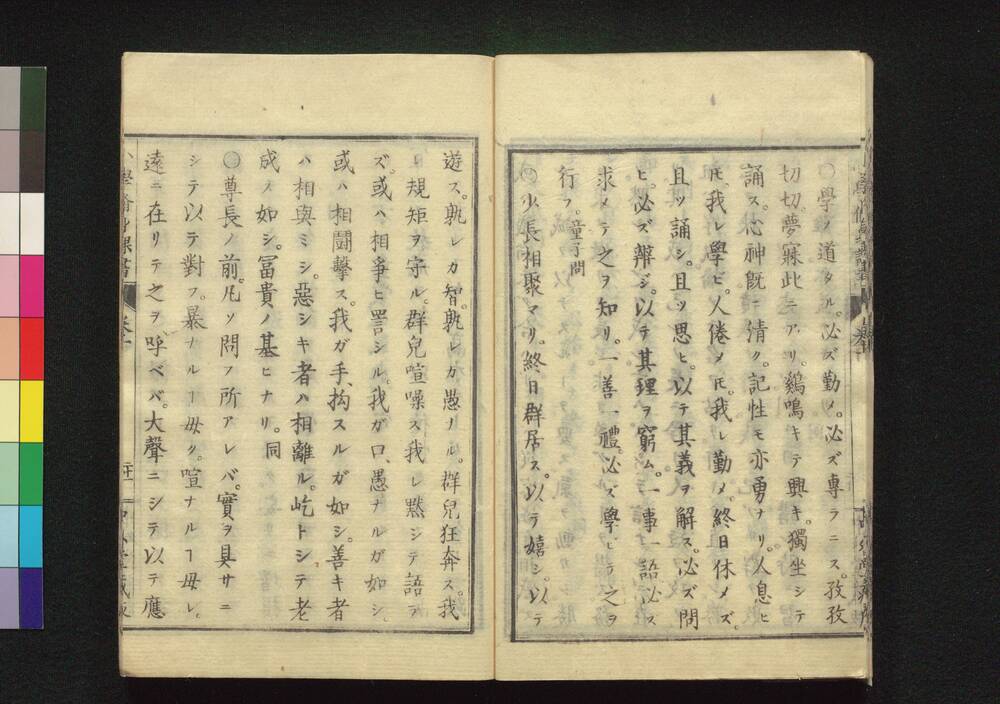 〇學ノ道タル。必ズ勤メ。必ズ專ラニス。孜孜
切切。夢寐此ニアリ。鷄鳴キテ興キ。獨坐シテ
誦ス。心神既ニ清ク。記性モ亦勇ナリ。人息ヒ
𪜈。我レ學ビ。人倦メ𪜈。我レ勤メ。終日休メズ。
且ツ誦シ。且ツ思ヒ。以テ其義ヲ解ス。必ズ問
ヒ。必ズ辨ジ。以テ其理ヲ窮ム。一事一語必ス
求メテ之ヲ知リ。一善一禮。必ズ學ビテ之ヲ
行フ。童子問
〇少長相聚マリ。終日群居ス。以テ嬉シ。以テ
遊ス。孰レカ智。孰レカ愚ナル。群兒狂奔ス。我
レ規矩ヲ守ル。群兒喧噪ス我レ黙シテ語ラ
ズ。或ハ相爭ヒ詈シル。我ガ口、愚ナルガ如シ。
或ハ相鬪擊ス。我ガ手、拘スルガ如シ。善キ者
ハ相與ミシ。惡シキ者ハ相離ル。屹トシテ老
成ノ如シ。冨貴ノ基ヒナリ。同
〇尊長ノ前。凡ソ問フ所アレバ。實ヲ具サニ
シテ以テ對フ。暴ナルヿ毋ク。喧ナルヿ毋レ。
遠ニ在リテ之ヲ呼ベバ。大聲ニシテ以テ應